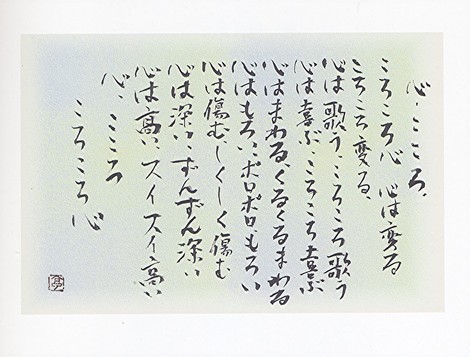 心、こころ、
ころころ心 心は変る
ころころ変る、
心は歌う、ころころ歌う
心は喜ぶ、ころころ喜ぶ
心はまわる、くるくるまわる
心はもろい、ボロボロもろい
心は傷む、しくしく傷む
心は深い、ずんずん深い
心は高い、スイスイ高い
心、こころ
ころころ心